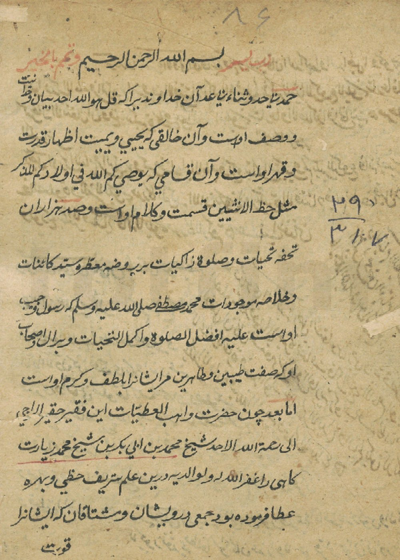 ۸۶
بسم الله الرحمن الرحیم وتمم بالخیر
حمد بیحد وثناء بیاعد آن خداوندیرا که قل هو الله احد بیان وحدانیت
ووصف اوست وآن خالقی که یحیی ویمیت اظهار قدرت
وقهر اوست وآن قسامی که یوصیکم الله فی اولادکم للذکر
مثل حظ الانثیین قسمت وکلام اوست وصد هزاران
تحفه تحیات وصلوة زاکیات بر روضه معطر وسید کائنات
وخلاصه موجودات محمد مصطفی صلی الله علیه وسلم که رسول وحبیب
اوست علیه افضل الصلوة واکمل التحیات وبرال واصحاب
او که صفت طیبین وطاهرین مر ایشانرا بلطف وکرم اوست
اما بعد چون حضرت واهب العطیات این فقیر حقیر الراجی
الی رحمة الله الاحد شیخ محمد بن ابی بکر بن شیخ محمد زیارت
کاهی را غفر الله له ولوالدیه درین علم شریف حظی وبهره
عطا فرموده بود جمعی درویشان ومشتاقان که ایشانرا
۲۹۰